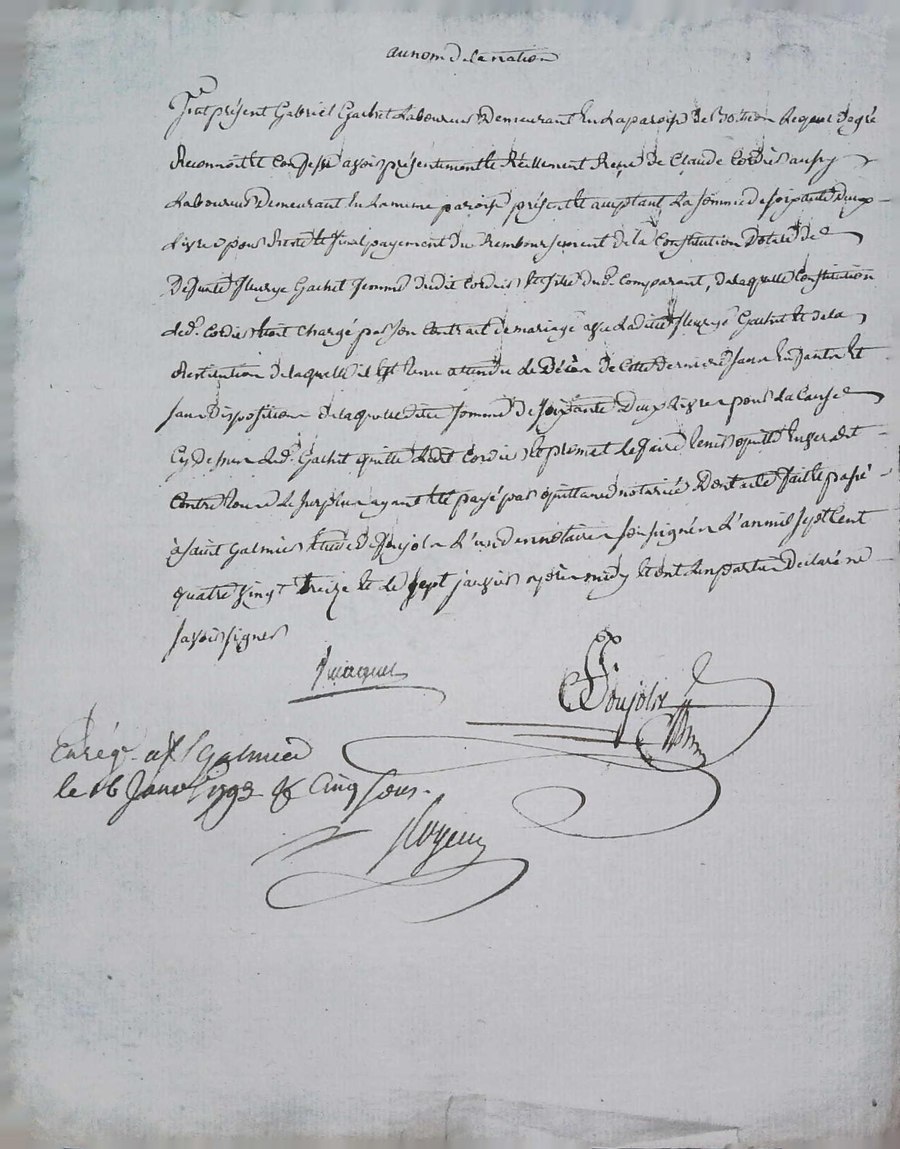 au nom de la nation
Fut présent Gabriel Gachet Laboureur Demeurant En La paroisse de Lequel De gré
Reconnoit et Confesse avoir présentement et Réellement Reçu de Claude Cordier aussy
Laboureur Demeurant En La meme paroisse présent et acceptant La somme de soixante Deux
Livres pour Reste et final payement du Remboursement de la Constitution Dotale de
Defunte fleurye Gachet femme dudit Cordier et fille dud. Comparant, de laquelle Constitution
led. Cordier Etoit chargé par son Contrait de mariage avec Laditte fleurye Gachet et de la
Restitution de laquelle il Est tenu attendu le Décès de Cette Derniere sans Enfants Et
sans Disposition de laquelle ditte somme de soixante Deux Livres pour La Cause
Cy Dessus Led. Gachet quitte Ledit Cordier et promet Le faire tenir quitte Envers Et
Contre tous Le surplus ayant Eté payé par quittance notariée Dont acte fait et passé
à saint Galmier Etude de Ponjolx L'un des notaires soussignés L'an mil sept Cent
quatre vingt treize et le sept janvier après midy et ont les parties Declaré ne
savoir signer
Ponjolx
Enrég. a St Galmier
le 16 Janv. 1793 Cinq sous.